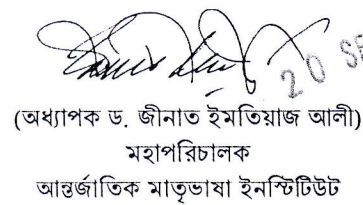 20 SE
(অধ্যাপক ড. জীনাত ইমতিয়াজ আলী)
মহাপরিচালক
আন্তর্জাতিক মাতৃভাষা ইনস্টিটিউট